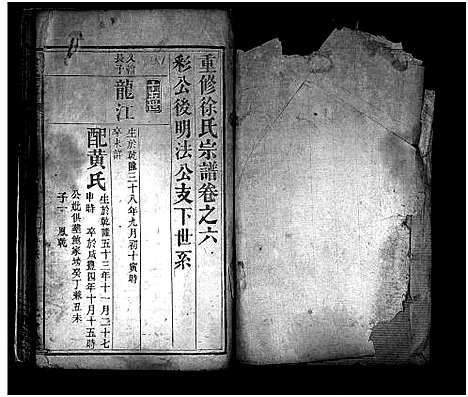 重修徐氏宗譜卷之六
彩公後明法公支下世系
文翰
長子
龍江
生於乾隆三十八年九月初十寅時
卒未詳
配黃氏
生於乾隆五十三年十一月二十七
申時 卒於咸豐四年十月十五時
公妣俱塟鮑家塝癸丁兼丑未
子一 鳳乾